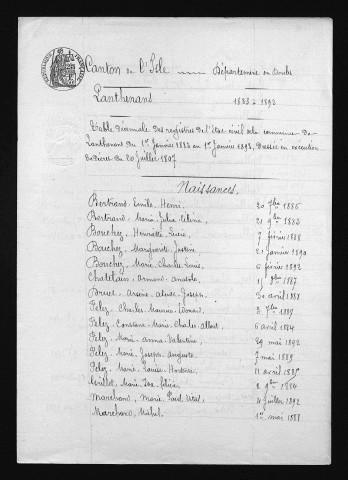 Canton de l'Isle Département du Doubs
Lanthenans 1883 à 1892
Table décennale des registres de l'état civil de la commune de
Lanthenans du 1er Janvier 1883 au 1er Janvier 1893, Dressée en exécution
du décret du 20 Juillet 1807
Naissances
Bertrand Emile Henri 20 1886
Bertrand Marie Julia 21 9bre 1883
Bouchez Henriette Lucie 7 février 1888
Bouchez Marguerite Justine 21 janvier 1890
Bouchez Marie Charles Louis 6 février 1892
Chatelain Armand Anatole 1887
Bruet Arsène Joseph 30 avril 1888
Pelez Charles Maurice Edouard 3 1885
Pelez Constant Marie Charles Albert 6 avril 1884
Pelez Marie Anna Valentine 29 mai 1892
Pelez Marie Joseph Auguste 7 mai 1889
Pelez Marie Louise Hortense 11 avril 1885
Marie 1884
Marchand Marie Paul 4 juillet 1892
Marchand Michel 1er mai 1888